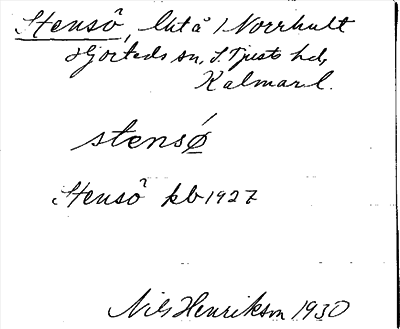 Stensô, lht å 1 Norrhult
Hjorteds sn, S. Tjusts hd,
Kalmar l.
stensǿ
Stensô kb 1927
Nils Henrikson 1930